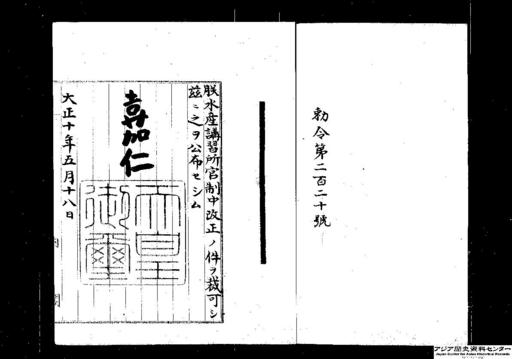 勅令第二百二十號
朕水産講習所官制中改正ノ件ヲ裁可シ
茲ニ之ヲ公布セシム
嘉仁
天皇
御璽
大正十年五月十八日
内閣
アジア歴史資料センター
Japan Center for Asian Historical Records